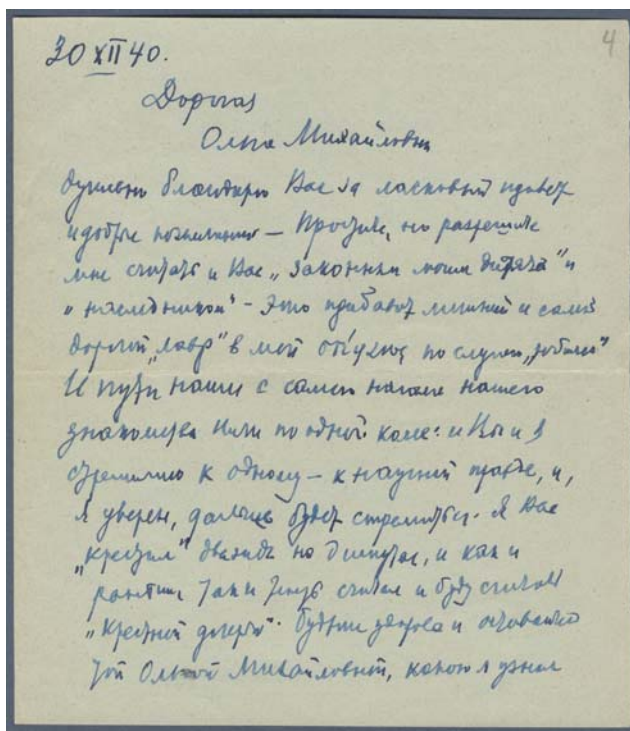 4
30 XII 40.
Дорогая
Ольга Михайловна
душевно благодарю Вас за ласковый привет
и добрые пожелания — Простите, но разрешите
мне считать и Вас „законным моим дитятей" и
„наследником" - это прибавит лишний и самый
дорогой „лавр" в мой по случаю „юбилея"
И пути наши с самого начала нашего
знакомства шли по одной колее: и Вы и я
стремились к одному — к научной правде, и,
я уверен, дальше будет стремиться. Я Вас
„крестил" дважды на диспутах, и как и
раньше так и теперь считал и буду считать
„крестной дочерью". Будьте здорова и оставайтесь
той Ольгой Михайловной, какою я узнал